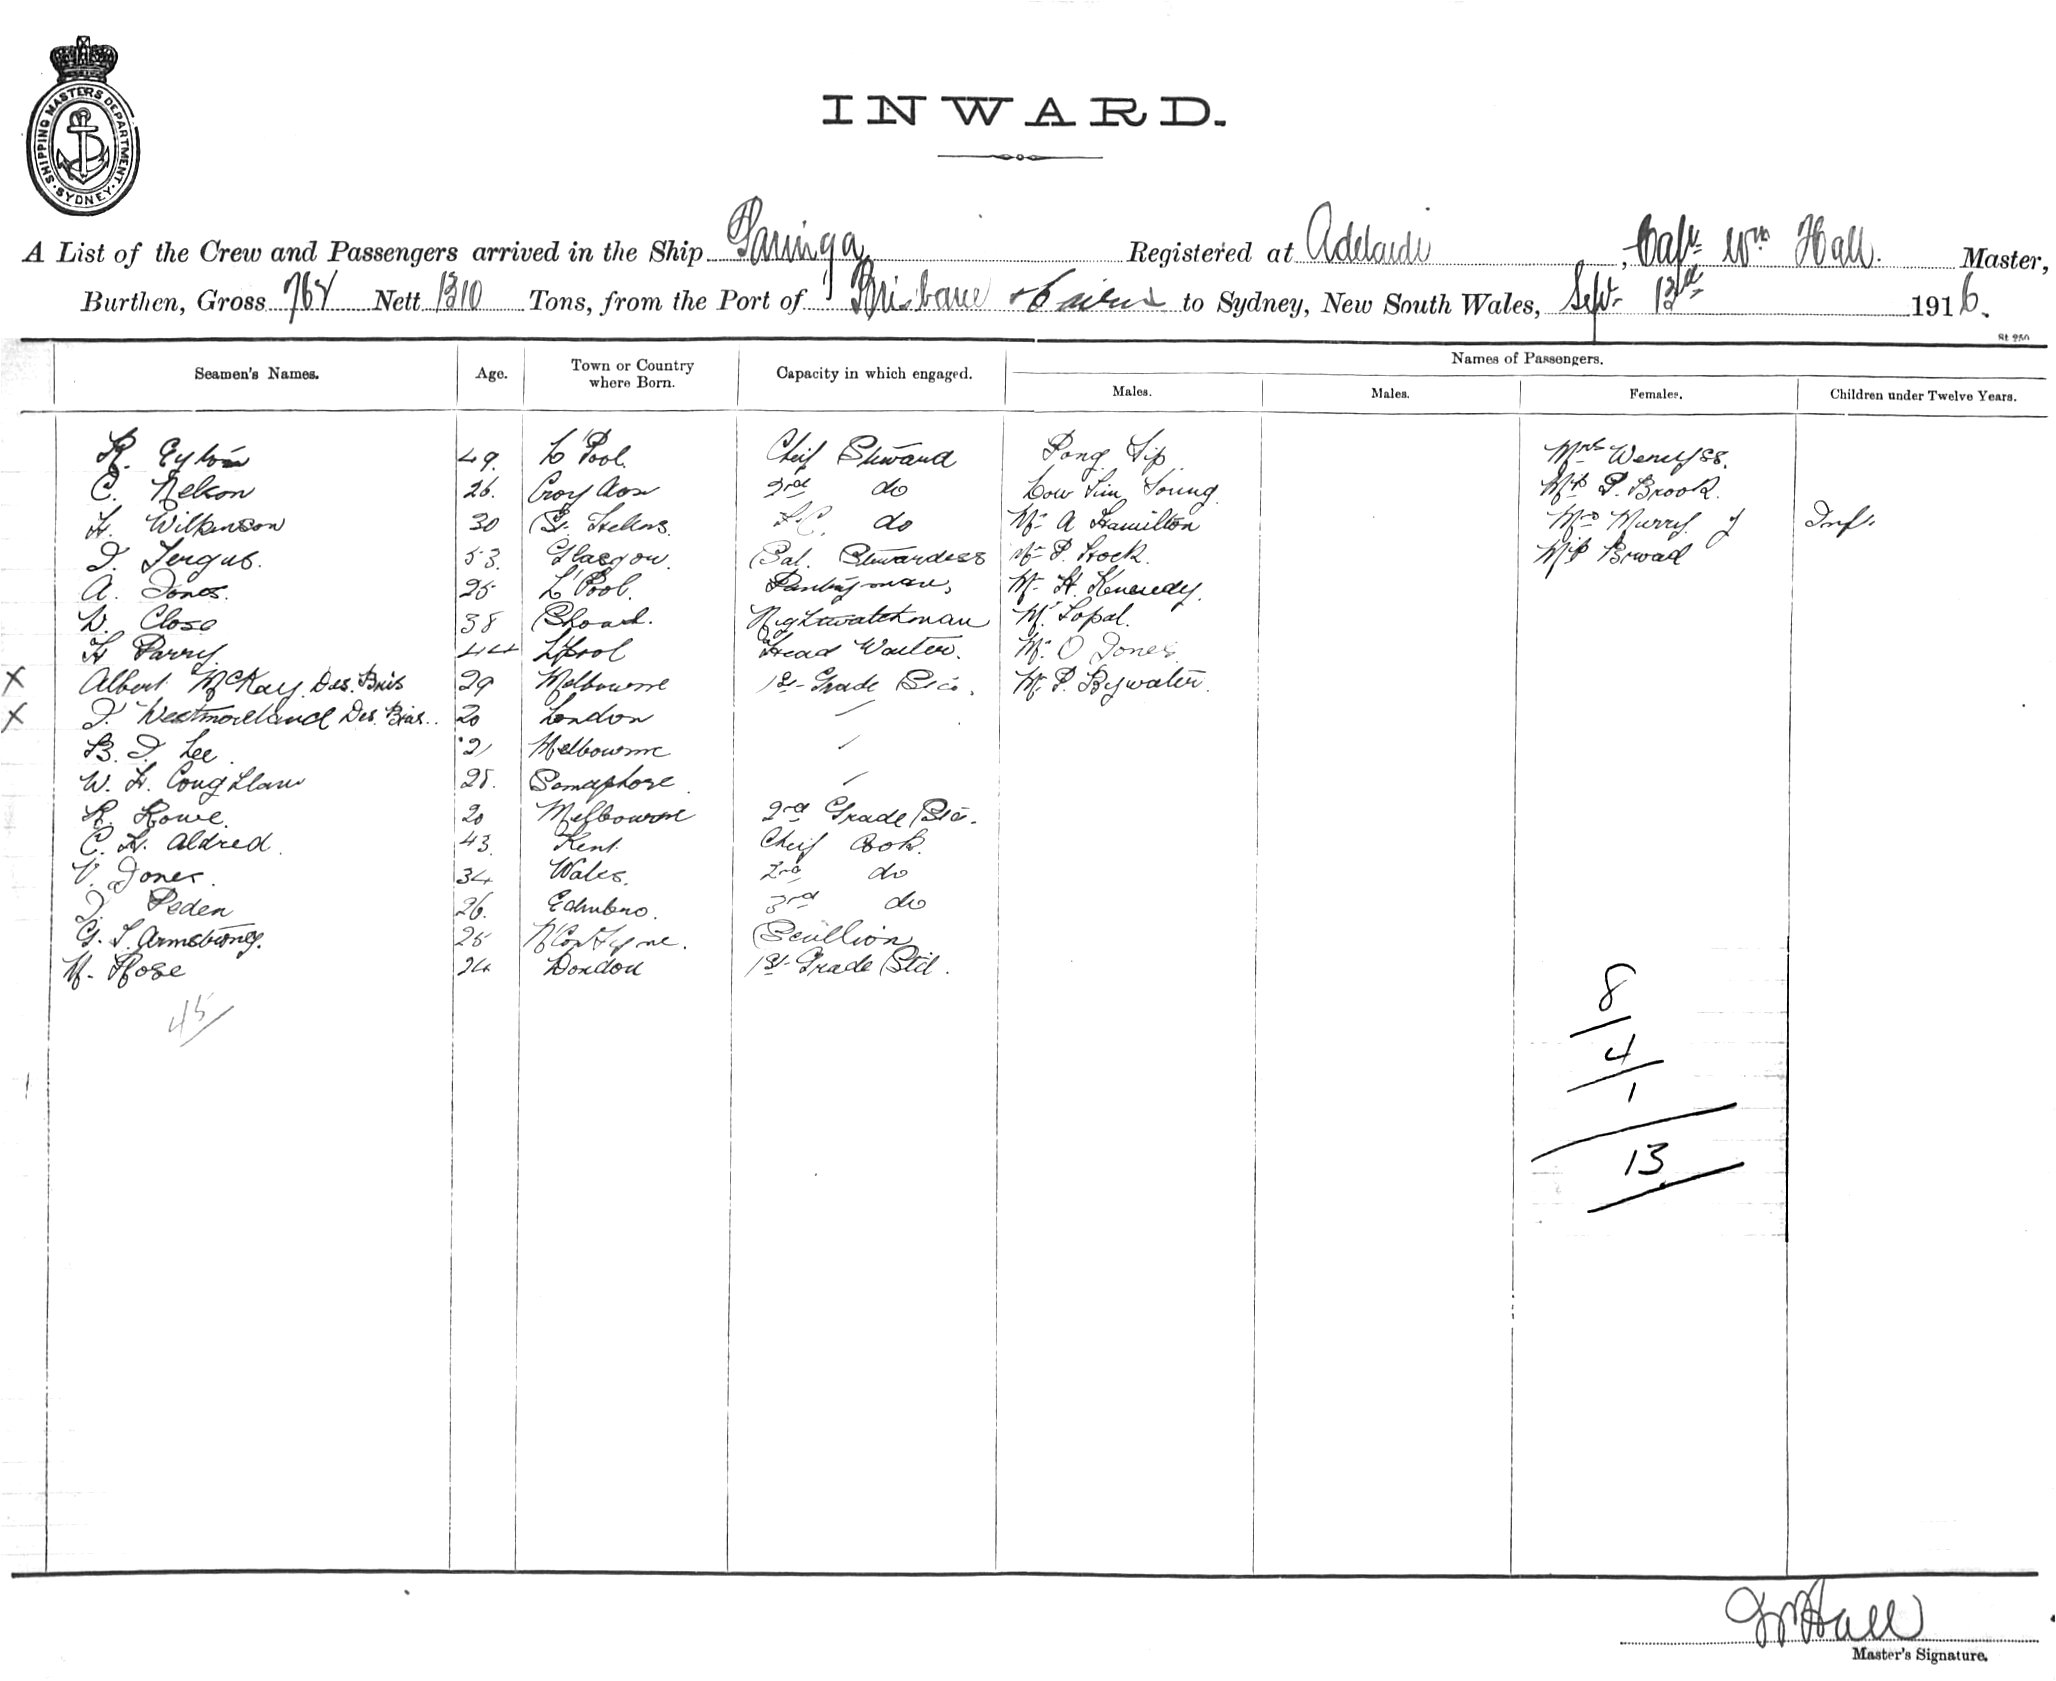 SHIPPING MASTERS DEPARTMENT. SYDNEY.
INWARD.
A List of the Crew and Passengers arrived in the Ship Paringa Registered at Adelaide, Capt Wm Hall. Master,
Burthen, Gross Nett 1310 Tons, from the Port of Brisbane & Cairns to Sydney, New South Wales, Sept. 13th 1916.
St. 250
Seamen's Names. Age. Town or Country where Born. Capacity in which engaged. Names of Passengers.
Males. Males. Females. Children under Twelve Years.
R. 49. L'Pool. Cheif Steward Pong Sip Mrs Wemyss.
C. Nelson 26. Croydon 2nd do Low Sim Young Mrs P. Brook.
H. Wilkinson 30 St. Helens F.C. do Mr A Hamilton Mrs Murry & Inf.
J. Fergus. 53. Glasgow. Sal. Stewardess Mr P. Stock. Brwad
A. Jones. 25 L'Pool. Pantryman, Mr H. Kenedy.
W. Close 38 Nightwatchman Mr Lopal.
H Parry. 44 L'Pool Head Waiter. Mr O Jones
X Albert McKay. Des. Bris 29 Melbourne 1st Grade Mr P. Bywater.
X J. Westmoreland Des. Bris. 20 London ″
B. J. Lee 21 Melbourne ″
W. H. Coughlan 28. Semaphore ″
R. Rowe. 20 Melbourne 2nd Grade
C. H. Aldred. 43. Kent. Cheif Cook.
V. Jones. 34 Wales. 2nd do
J. Peden 26. Edinbro. 3rd do
G. S. Armstrong. 25 N'C on Tyne. Scullion
H. Rose 24 London 1st Grade Std.
45
8
4
1
13
Wm Hall
Master's Signature.